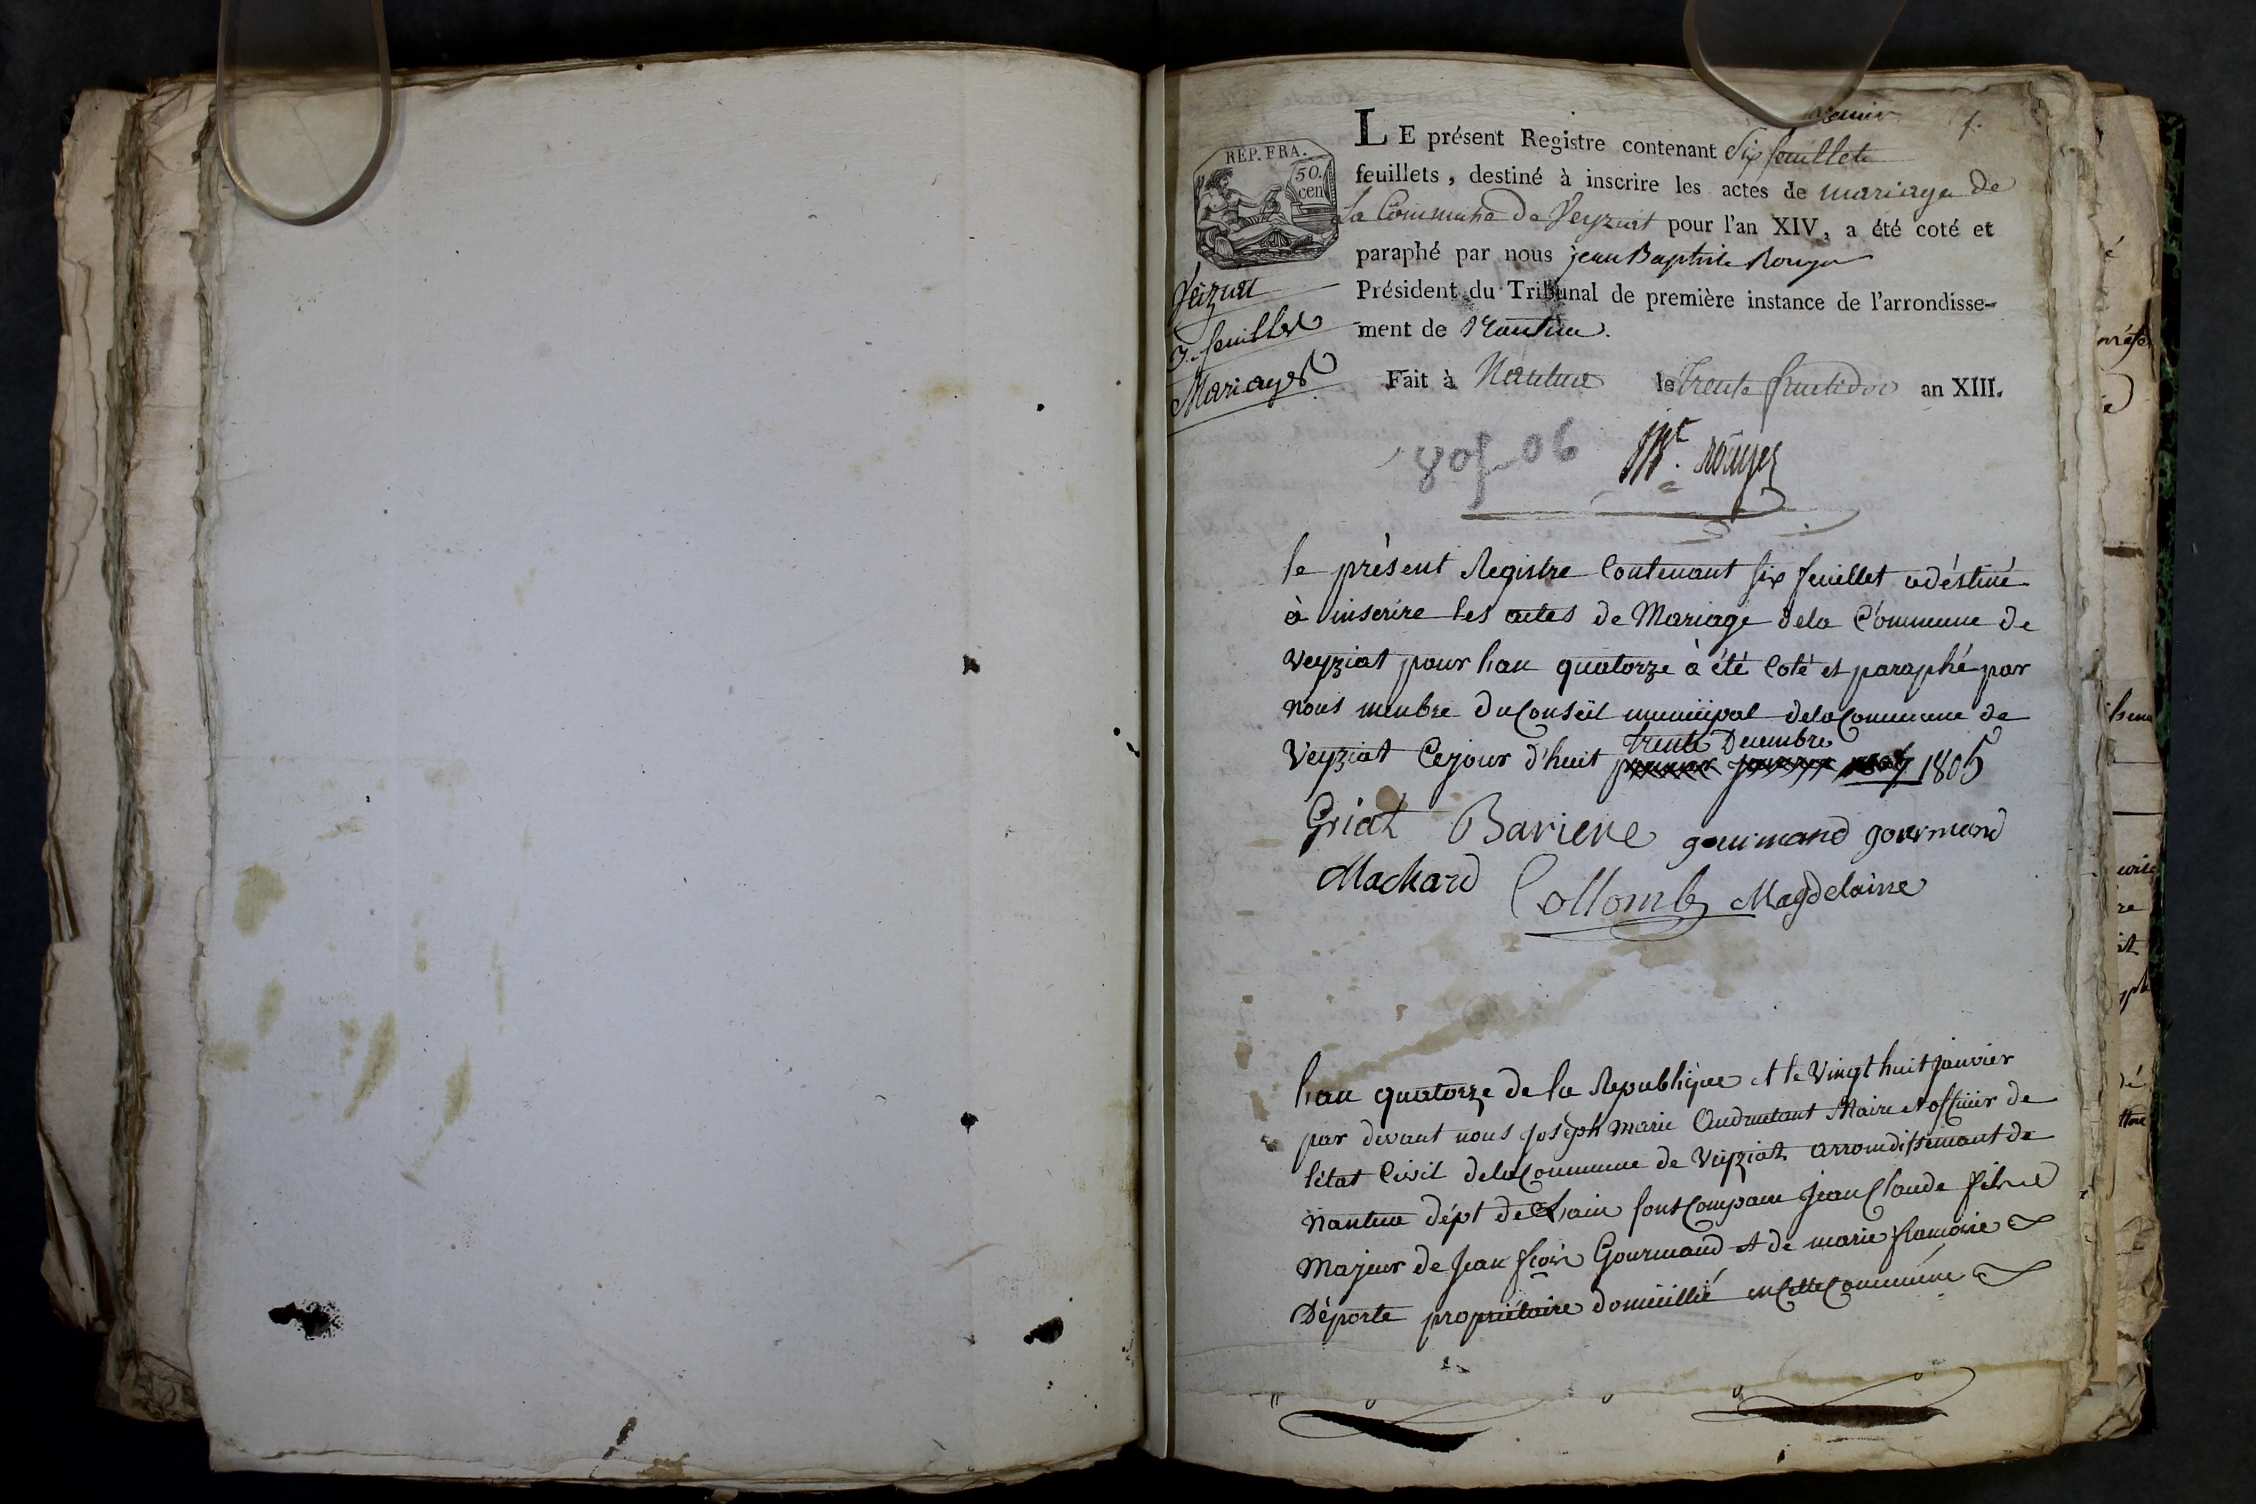 premier 1.
REP. FRA.
50.
cen
LE présent Registre contenant Six feuillets
feuillets, destiné à inscrire les actes de mariage de
La Commune De Veyziat pour l'an XIV, a été coté et
paraphé par nous jean Baptiste Rouyer
Président du Tribunal de première instance de l'arrondisse-
ment de Nantua.
Fait à Nantua le Trente fructidor an XIII.
Veiziat
feuillets
Mariages
1805-06
Rouyer
le présent Registre Contenant six feuillet a déstiné
à inscrire les actes de Mariage dela Commune de
Veyziat pour lan quatorze à été Coté et paraphé par
nous menbre du Conseil municipal dela Commune de
trente Decembre
Veyziat Cejour d'huit premier janvier 1805
Griat Bariere gourmand gourmand
Machard Collomb Magdelaine
lan quatorze de la Republique et le Vingt huit janvier
par devant nous joséph marie Maire et officier de
létat Civil dela Commune de Veyziat arrondissemant de
nantua dépt de Lain sont Comparu Jean Claude fils
Majeur de Jean frois Gourmand et de marie francoise
Déporte propriétaire domicillié en Cette Commune